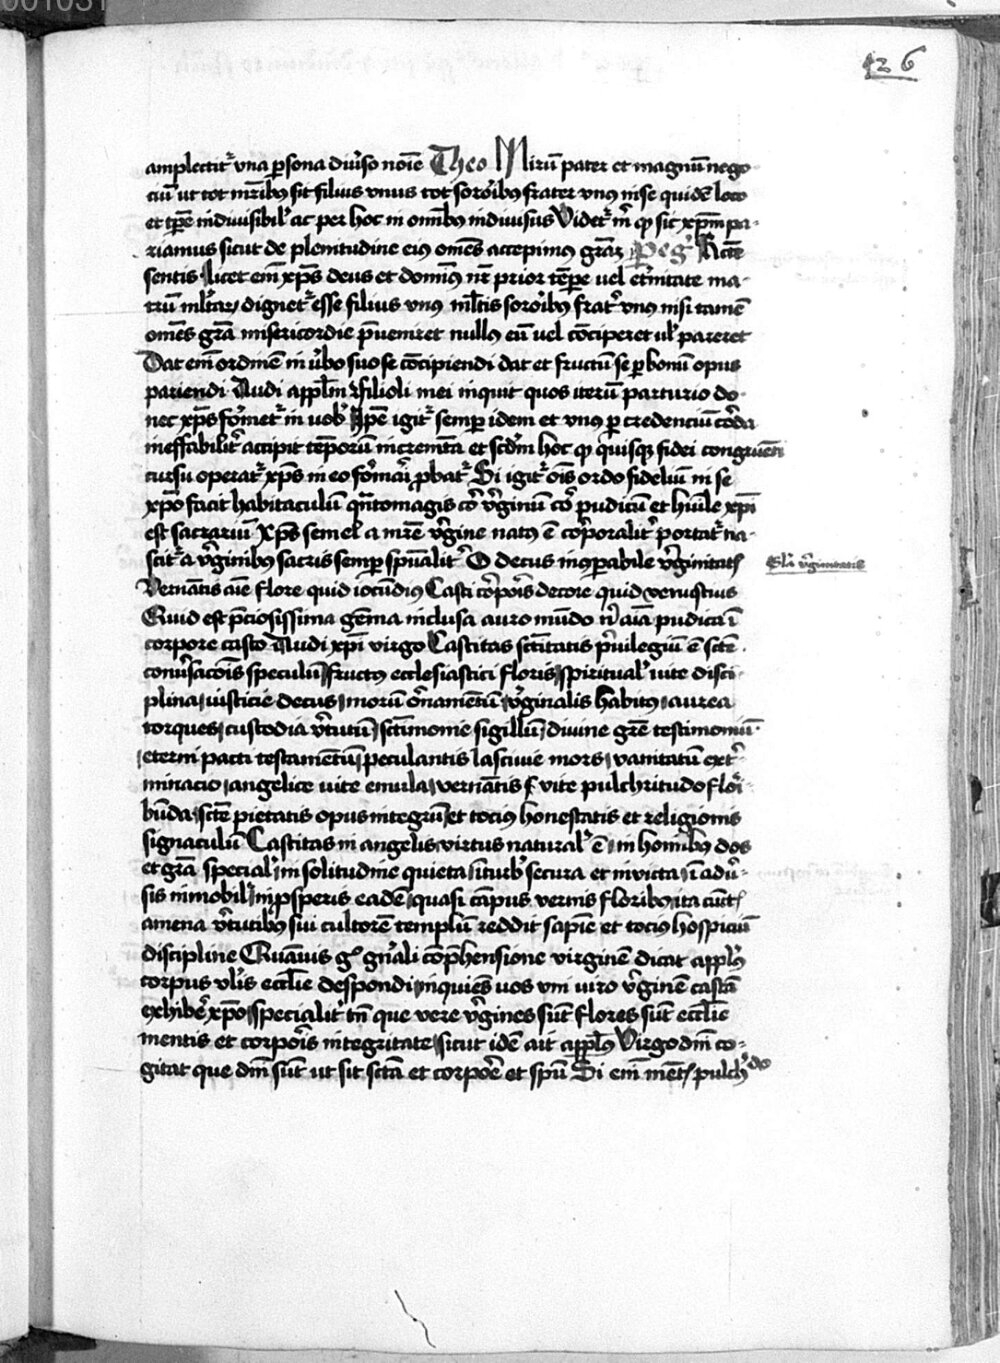 001031
126
amplectit᷑ vna ꝑsona diũso noīe Theo Mirũ pater et magnũ nego-
ciũ ut tot mr̃ibꝰ sit filius vnus tot sororibꝰ frater vnꝰ in se quidē loco
et tp̃e indiuisibil᷑ ac per hoc in om̃ibꝰ indiuisus Videt᷑ m̃ ꝙ sic xp̃m pa-
riamus sicut de plenitudine eiꝰ om̃s accepimꝰ gr̃aꝫ Peg᷑ Acute
sentis licet em̃ xp̃s deus et dominꝰ nr̃ prior tēp̃e vel et᷑nitate ma-
trũ mltaꝝ dignet᷑ esse filius vnꝰ ml̃tis sororibꝰ frat᷑ vnꝰ nisi tamē
om̃es gr̃a misericordie p̃ueniret nullꝰ eũ vel cōciperet ul᷑ pareret
Dat em̃ ordinē in u᷑bo suo se cōcipiendi dat et fructũ se ꝑ bonũ opus
pariendi Audi appl̃m filioli mei inquit quos iterũ parturio do-
nec xp̃s formet᷑ in uob᷑ Ip̃e igit᷑ semꝑ idem et vnꝰ ꝑ credenciũ corda
ineffabilit᷑ accipit tēporũ increm̃ta et scd̃m hoc ꝙ quisqꝫ fidei congruenti
cursu operat᷑ xp̃s in eo formari ꝓbat᷑ Si igit᷑ oīs ordo fideliũ in se
xp̃o facit habitaculũ qñtomagis cor v᷑ginũ cor pudicũ et hũile xp̃i
est sacrariũ Xp̃s semel a mr̃e v᷑gine natꝰ ē corporalit᷑ portat᷑ na-
scit᷑ a v᷑ginibꝰ sacris semꝑ spũalit᷑ O decus incōꝑabile v᷑ginitatꝭ
Vernātis aīe flore quid iocũdiꝰ Casti corꝑis decore quid venustius
Quid est p̃ciosissima gēma inclusa auro mũdo nͥ aīa pudica ī
corpore casto Audi xp̃i virgo Castitas sc̃titatis p̃uilegiũ ē sc̃te
conu᷑sac̃ois speculũ fructꝰ ecclesiastici floris spiritual᷑ uite disci-
plina iusticie decus morũ ornamētũ v᷑ginalis habitꝰ aurea
torques custodia v᷑tutũ sc̃timonie sigillũ diuine gr̃e testimoniũ
eterni pacti testamētũ peculantis lasciuie mors vanitatũ ext᷑-
minacio angelice uite emula vernātis vite pulchritudo flori-
bũda sc̃te pietatis opus integrũ et tociꝰ honestatis et religionis
signaculũ Castitas in angelis virtus natural᷑ ē in homībꝰ dos
et gr̃a special᷑ in solitudine quieta in turb᷑ secura et inuicta ī adu᷑-
sis inmobil᷑ in ꝓsperis eadē quasi cãpus vernis floribꝰ ita cunctꝭ
amena v᷑tutibus sui cultorē templũ reddit sapiē et tociꝰ hospiciũ
discipline Quāuis gͦ gn᷑ali cōp̃hensione virginē dicat appl̃ꝰ
corpus vl᷑is eccl̃ie despondi inquiēs uos vni uiro v᷑ginē castā
exhibe᷑ xp̃o specialit᷑ tñ que vere v᷑gines sũt flores sũt eccl̃ie
mentis et corporis integritate sicut idē ait appl̃ꝰ Virgo dñi co-
gitat que dñi sũt ut sit sc̃ta et corpore et spũ Si em̃ mentꝭ pulch᷑do
v᷑ginitatis